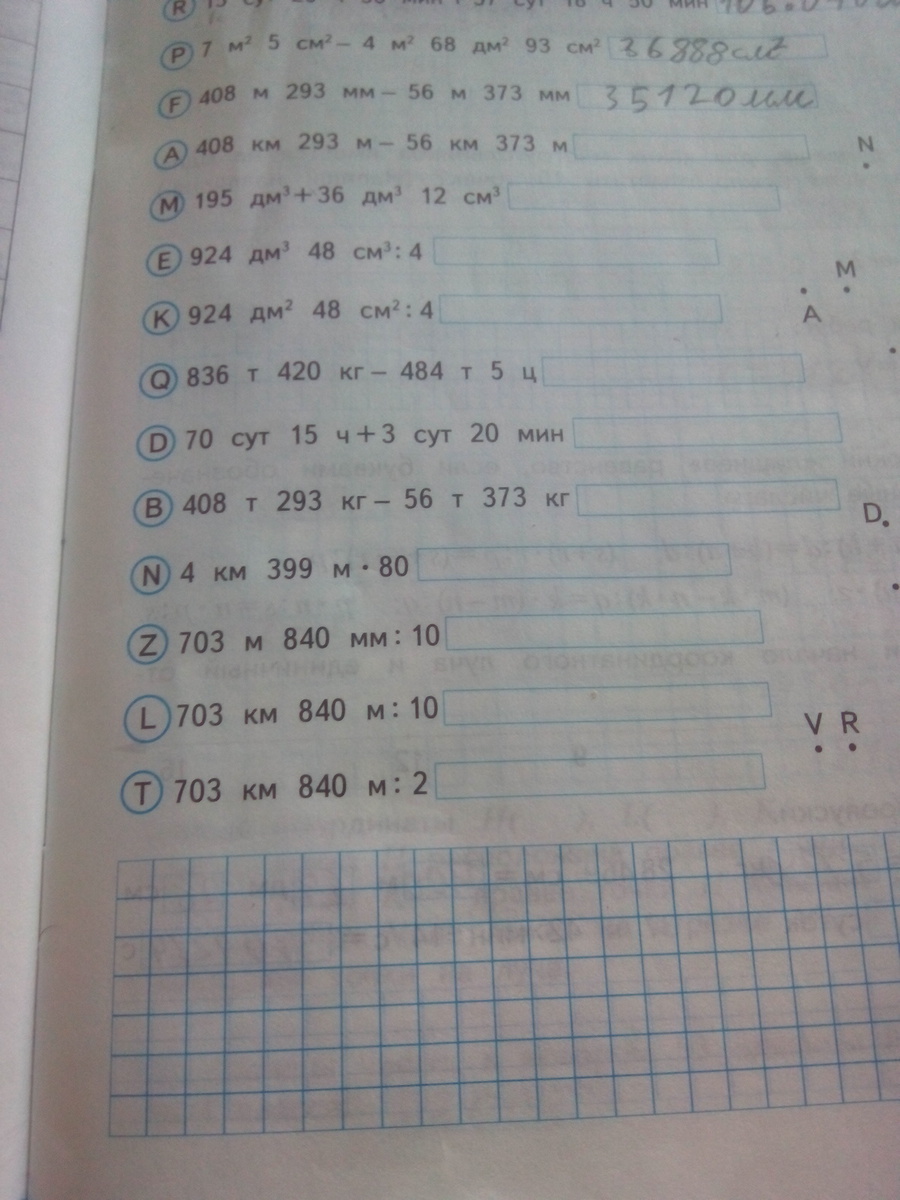 R
P 7 м² 5 см² – 4 м² 68 дм² 93 см² 36888см²
F 408 м 293 мм – 56 м 373 мм 35120мм
A 408 км 293 м – 56 км 373 м
N
M 195 дм³ + 36 дм³ 12 см³
E 924 дм³ 48 см³ : 4
M
K 924 дм² 48 см² : 4
A
Q 836 т 420 кг – 484 т 5 ц
D 70 сут 15 ч + 3 сут 20 мин
B 408 т 293 кг – 56 т 373 кг
D
N 4 км 399 м · 80
Z 703 м 840 мм : 10
L 703 км 840 м : 10
V R
T 703 км 840 м : 2